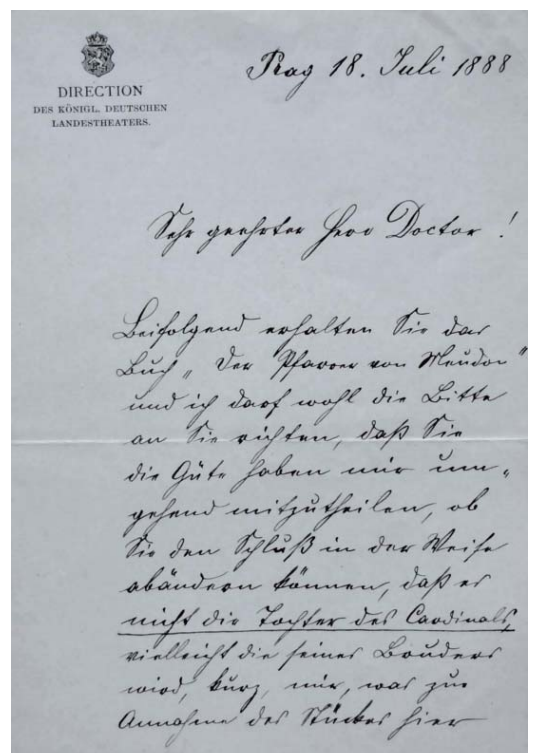 DIRECTION
DES KÖNIGL. DEUTSCHEN
LANDESTHEATERS.
Prag 18. Juli 1888
Sehr geehrter Herr Doctor!
Beifolgend erhalten Sie das
Buch „Der Pfarrer von Meudon"
und ich darf wohl die Bitte
an Sie richten, daß Sie
die Güte haben mir um-
gehend mitzutheilen, ob
Sie den Schluß in der Weise
abändern können, daß es
nicht die Tochter des Cardinals,
vielleicht die seines Bruders
wird, kurz, was zur
Annahme des Stückes hier